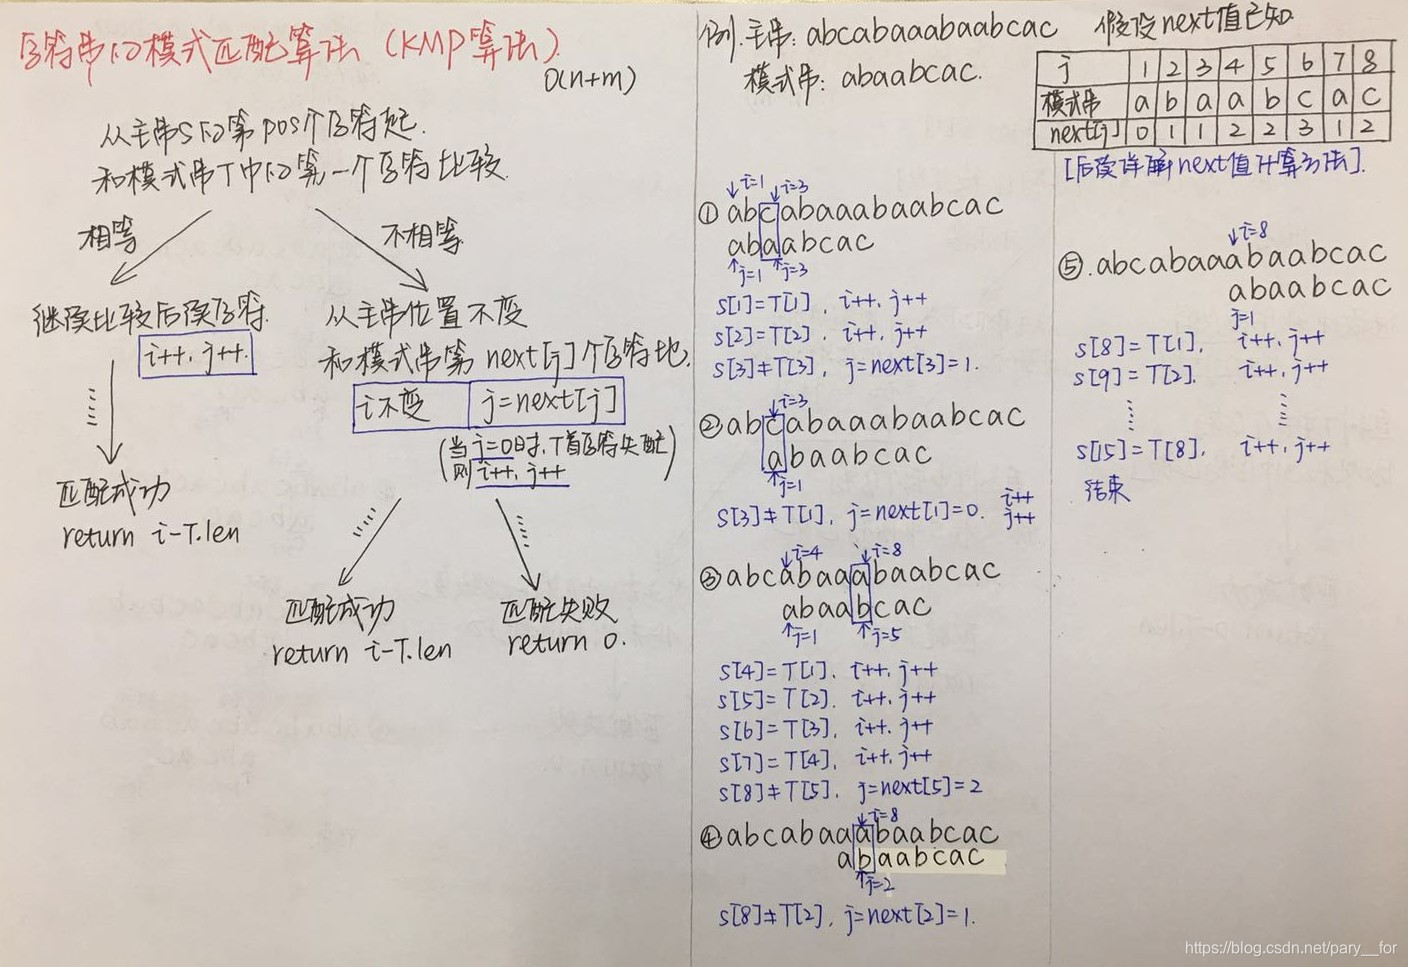 字符串的模式匹配算法 (KMP算法).
O(n+m)
从主串S的第pos个字符起.
和模式串T中的第一个字符比较.
相等
不相等
继续比较后续字符.
i++, j++.
从主串位置不变
和模式串第next[j]个字符比.
i不变
j=next[j]
(当j=0时, T首字符失配)
则i++, j++
匹配成功
return i-T.len
匹配成功
return i-T.len
匹配失败
return 0.
例. 主串: abcabaaabaabcac
模式串: abaabcac.
假设next值已知
j 1 2 3 4 5 6 7 8
模式串 a b a a b c a c
next[j] 0 1 1 2 2 3 1 2
[后续详解next值计算方法].
i=1 i=3
① abcabaaabaabcac
abaabcac
j=1 j=3
S[1]=T[1]. i++, j++
S[2]=T[2]. i++, j++
S[3]≠T[3], j=next[3]=1.
i=3
② abcabaaabaabcac
abaabcac
j=1
S[3]≠T[1], j=next[1]=0. i++ j++
i=4 i=8
③ abcabaaabaabcac
abaabcac
j=1 j=5
S[4]=T[1]. i++, j++
S[5]=T[2]. i++, j++
S[6]=T[3]. i++, j++
S[7]=T[4]. i++, j++
S[8]≠T[5]. j=next[5]=2
i=8
④ abcabaaabaabcac
abaabcac
j=2
S[8]≠T[2], j=next[2]=1.
i=8
⑤. abcabaaabaabcac
abaabcac
j=1
S[8]=T[1]. i++, j++
S[9]=T[2]. i++, j++
S[15]=T[8]. i++, j++
结束
https://blog.csdn.net/pary__for